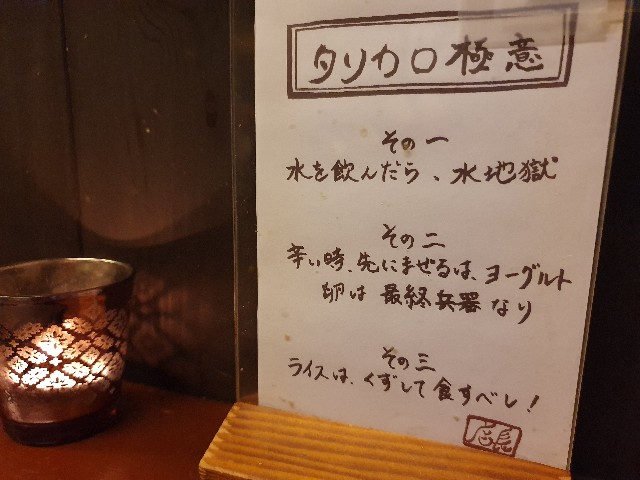 タリカロ極意
その一
水を飲んだら、水地獄
その二
辛い時、先にまぜるは、ヨーグルト
卵は 最終兵器なり
その三
ライスは、くずして食すべし!
店長